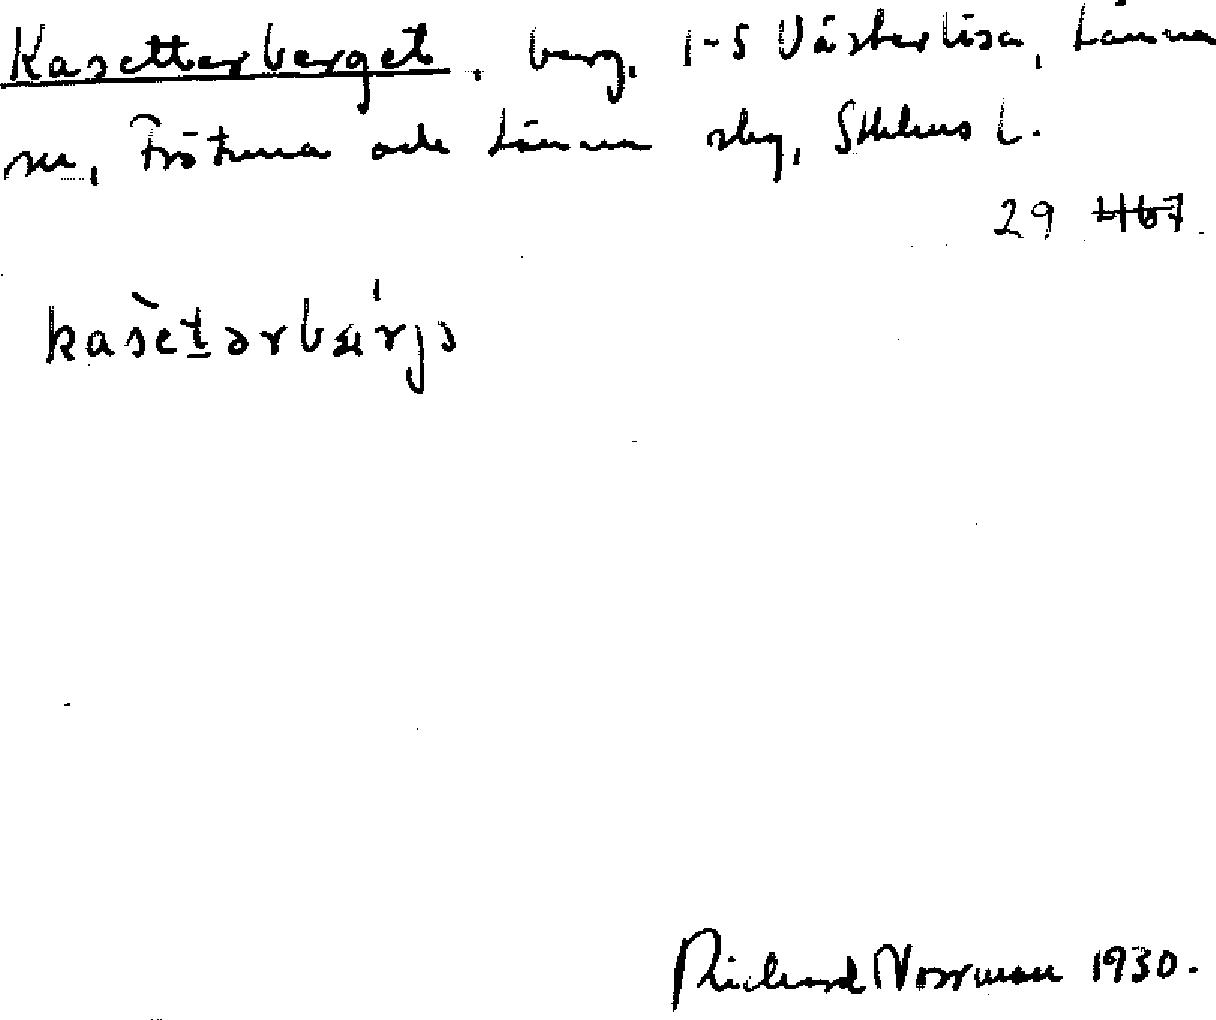 Kasetterberget, berg, 1-5 Västerlisa, Länna
sn, Frötuna och Länna slg, Sthlms l.
29
kasètərbǽrjə
Richard Norrman 1930.